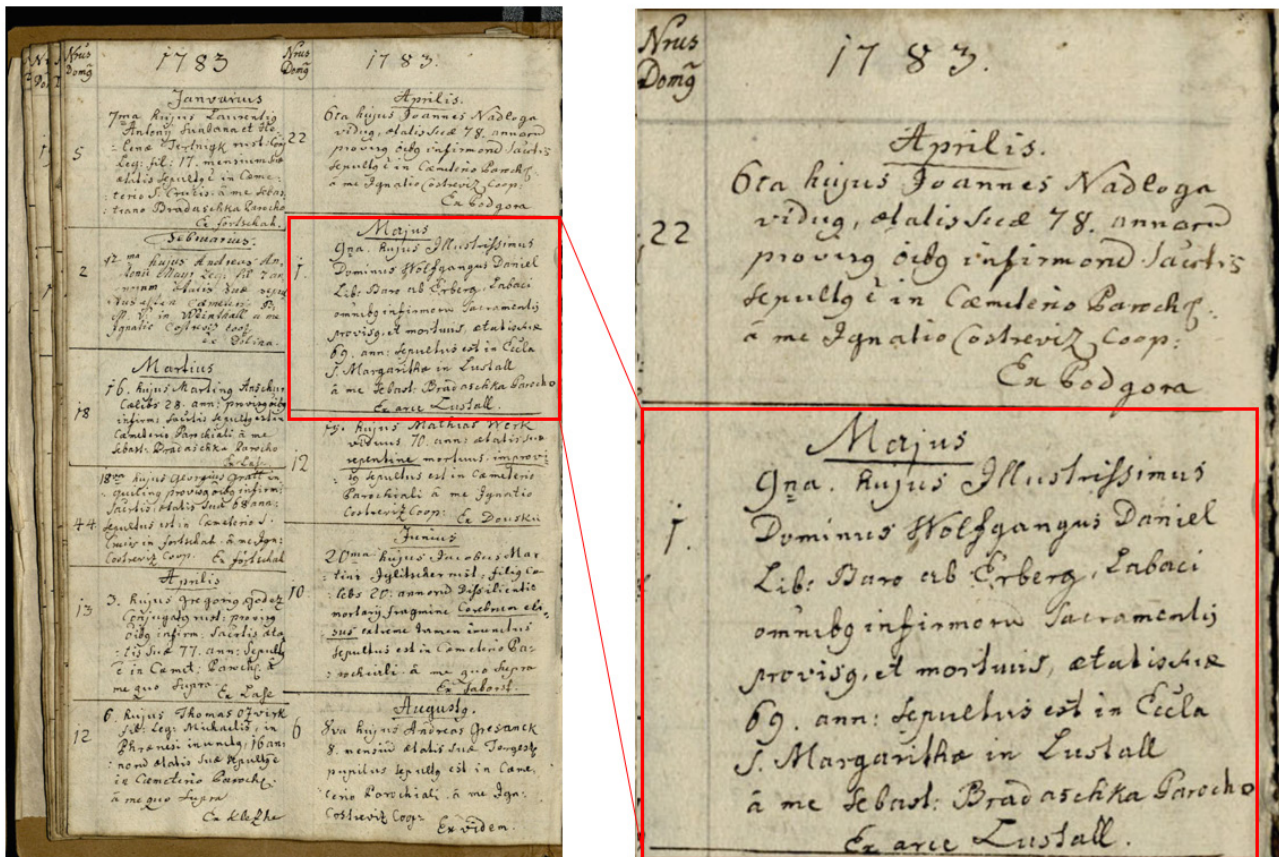 Nrus
Domg
1783
Januarius
5
7ma hujus Laurentig
Antonij et He-
Leg: fil: 17. mensium suæ
ætatis sepultg ē in Cæme-
terio S. Crucis. à me Sebas
tiano Bradaschka Parocho
Ex fortschah.
Februarius.
2
12 ma hujus Andreas An-
Leg: fil
ætatis suæ
in Cæmeterio B.
M. V. in Weinthall à me
Ignatio Costreviz coop:
ex Dolina.
Martius
18
16. hujus Marting Anschur
Cælebs 28. ann: provisg oibg
infirm: Sacrtis sepultg est in
Cæmeterio Parochiali à me
Sebast: Bradaschka Parocho
44
18va hujus Georgius Gratt in
quiling provisg oibg infirm:
Sacrtis, ætatis suæ 68 ann:
sepultus est in Cæmeterio S.
Crucis in fortschat. à me Ign:
Costreviz Coop. Ex fortschat
Aprilis
13
3. hujus Gregorig Godez
Conjugatg rust: provisg
oibg infirm: Sacrtis æta
tis suæ 77. ann: sepultg
ē in Cæmet: Paroch: à
me quo supra. Ex Lase
12
6. hujus Thomas Ozwirk
fil: Leg: Michaelis, in
Phrænesi inventg, 16 an:
norū ætatis suæ sepultg ē
in Cæmeterio Paroch:
à me quo supra
Nrus
Domg
1783.
Aprilis.
22
6ta hujus Joannes Nadloga
vidug, ætatis suæ 78. annorū
provisg oibg infirmorū Sacrtis
sepultg ē in Cæmeterio Paroch:
à me Ignatio Costreviz Coop:
Ex Podgora
Majus
1.
9na. hujus Illustrissimus
Dominus Wolfgangus Daniel
Lib: Baro ab Erberg, Labaci
omnibg infirmorū Sacramentis
provisg, et mortuus, ætatis suæ
69. ann: sepultus est in Eccla
S. Margarithæ in Lustall
à me Sebast: Bradaschka Parocho
Ex arce Lustall.
12
hujus Mathias Werk
viduus 70. ann: ætatis suæ
repentine mortuus, improvi-
sg sepultus est in Cæmeterio
Parochiali à me Ignatio
Costreviz Coop: Ex Dousku
Junius
10
20ma hujus Jacobus Mar
tini Iglitscher rust: filig Cæ
lebs 20: annorū dissiliente
mortarij fragmine Cerebrum eli-
sus
sepultus est in Cæmeterio Pa-
rochiali à me quo supra
Ex Saborst.
Augustg.
6
8va hujus Andreas Gresanek
8. mensiū ætatis suæ Tergest:
pupilus sepultg est in Cæme-
terio Parochiali à me Ign:
Costreviz Coop:
Ex Videm.
Nrus
Domg
1783.
Aprilis.
22
6ta hujus Joannes Nadloga
vidug, ætatis suæ 78. annorū
provisg oibg infirmorū Sacrtis
sepultg ē in Cæmeterio Paroch:
à me Ignatio Costreviz Coop:
Ex Podgora
Majus
1.
9na. hujus Illustrissimus
Dominus Wolfgangus Daniel
Lib: Baro ab Erberg, Labaci
omnibg infirmorū Sacramentis
provisg, et mortuus, ætatis suæ
69. ann: sepultus est in Eccla
S. Margarithæ in Lustall
à me Sebast: Bradaschka Parocho
Ex arce Lustall.